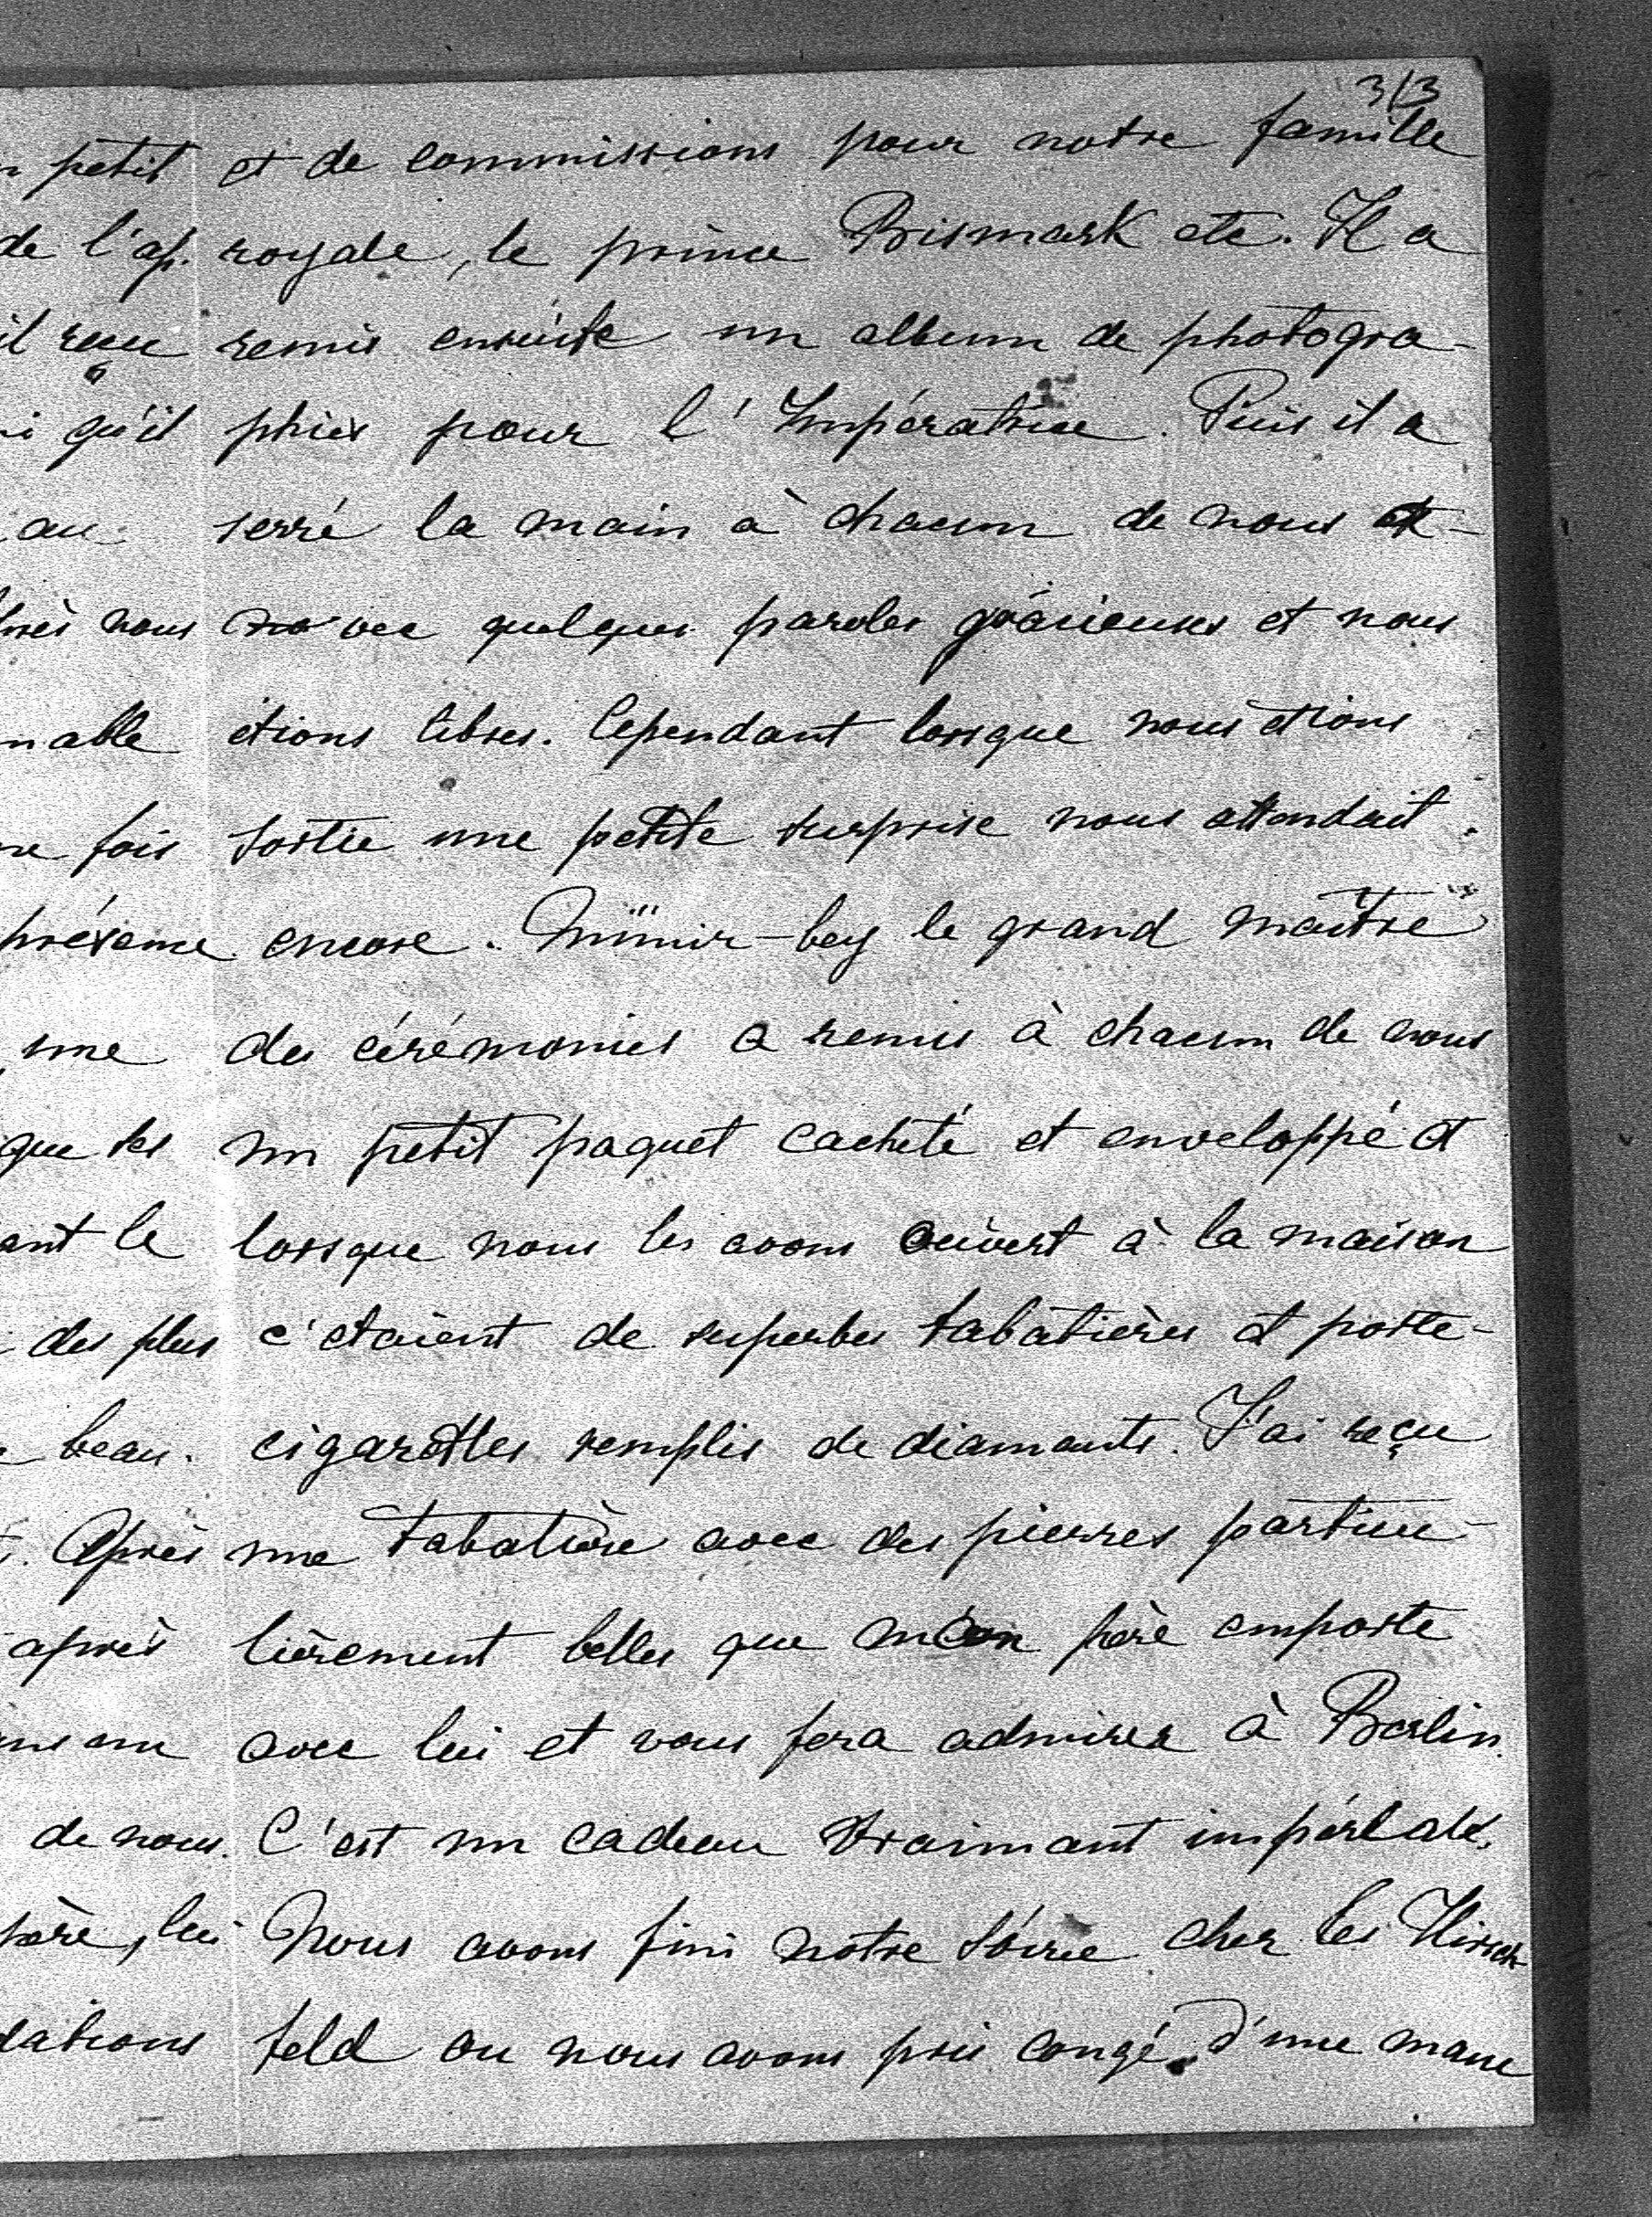 3/3
petit
de l'ap.
il reçu
qu'il
au
nous
nable
fois
une
que les
ant le
des plus
beau.
Après
après
de nous.
père, lui
dations
et de commissions pour notre famille
royale, le prince Bismark etc. Il a
remis ensuite un album de photogra-
phies pour l'Impératrice. Puis il a
serré la main à chacun de nous a-
vec quelques paroles gracieuses et nous
étions libres. Cependant lorsque nous étions
sortie une petite surprise nous attendait
encore. Münir-bey le grand maître
des cérémonies a remis à chacun de nous
un petit paquet cacheté et enveloppé et
lorsque nous les avons ouvert à la maison
c'étaient de superbes tabatières et porte-
cigarettes remplis de diamants. J'ai reçu
une tabatière avec des pierres particu-
lièrement belles que mon père emporte
avec lui et vous fera admirer à Berlin.
C'est un cadeau vraimant impérial.
Nous avons fini notre soirée chez les Hirsch
feld ou nous avons pris congé d'une mane